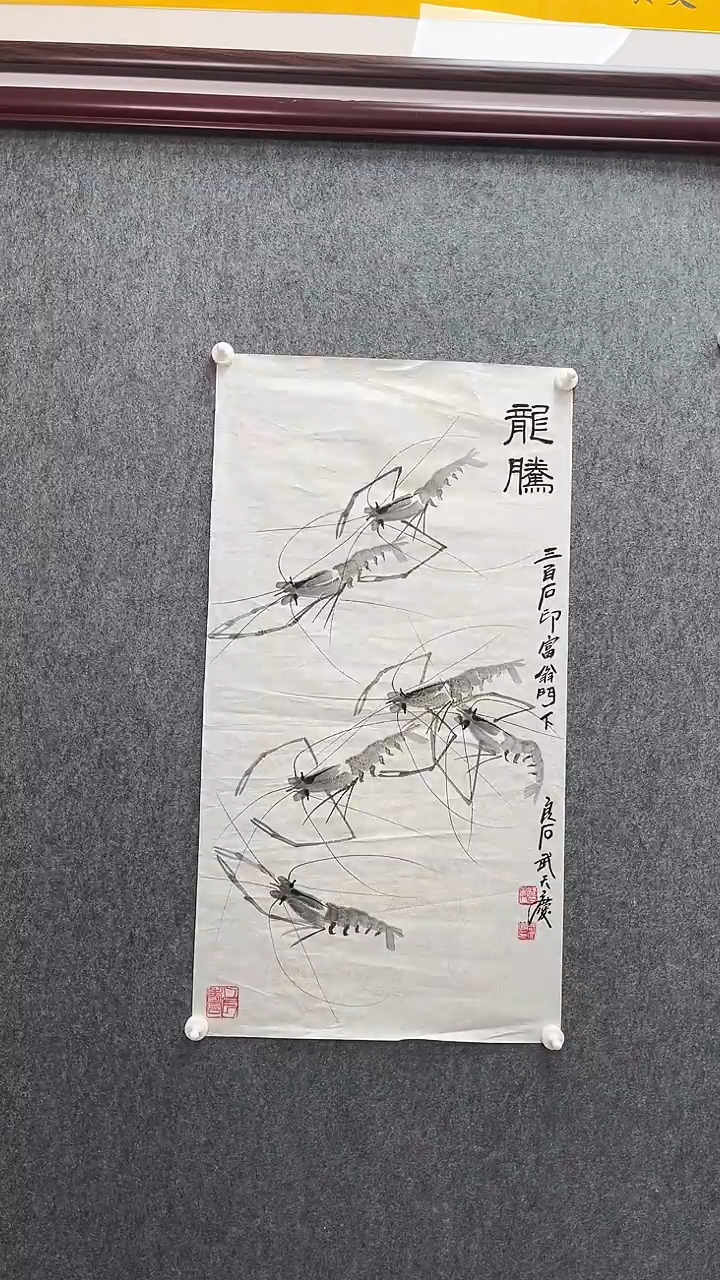 龍騰
三百石印富翁門下
良石武天廣